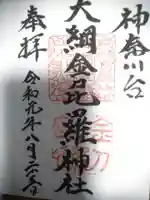 神奈川台
大綱金毘羅神社
奉拝
令和元年八月二六日